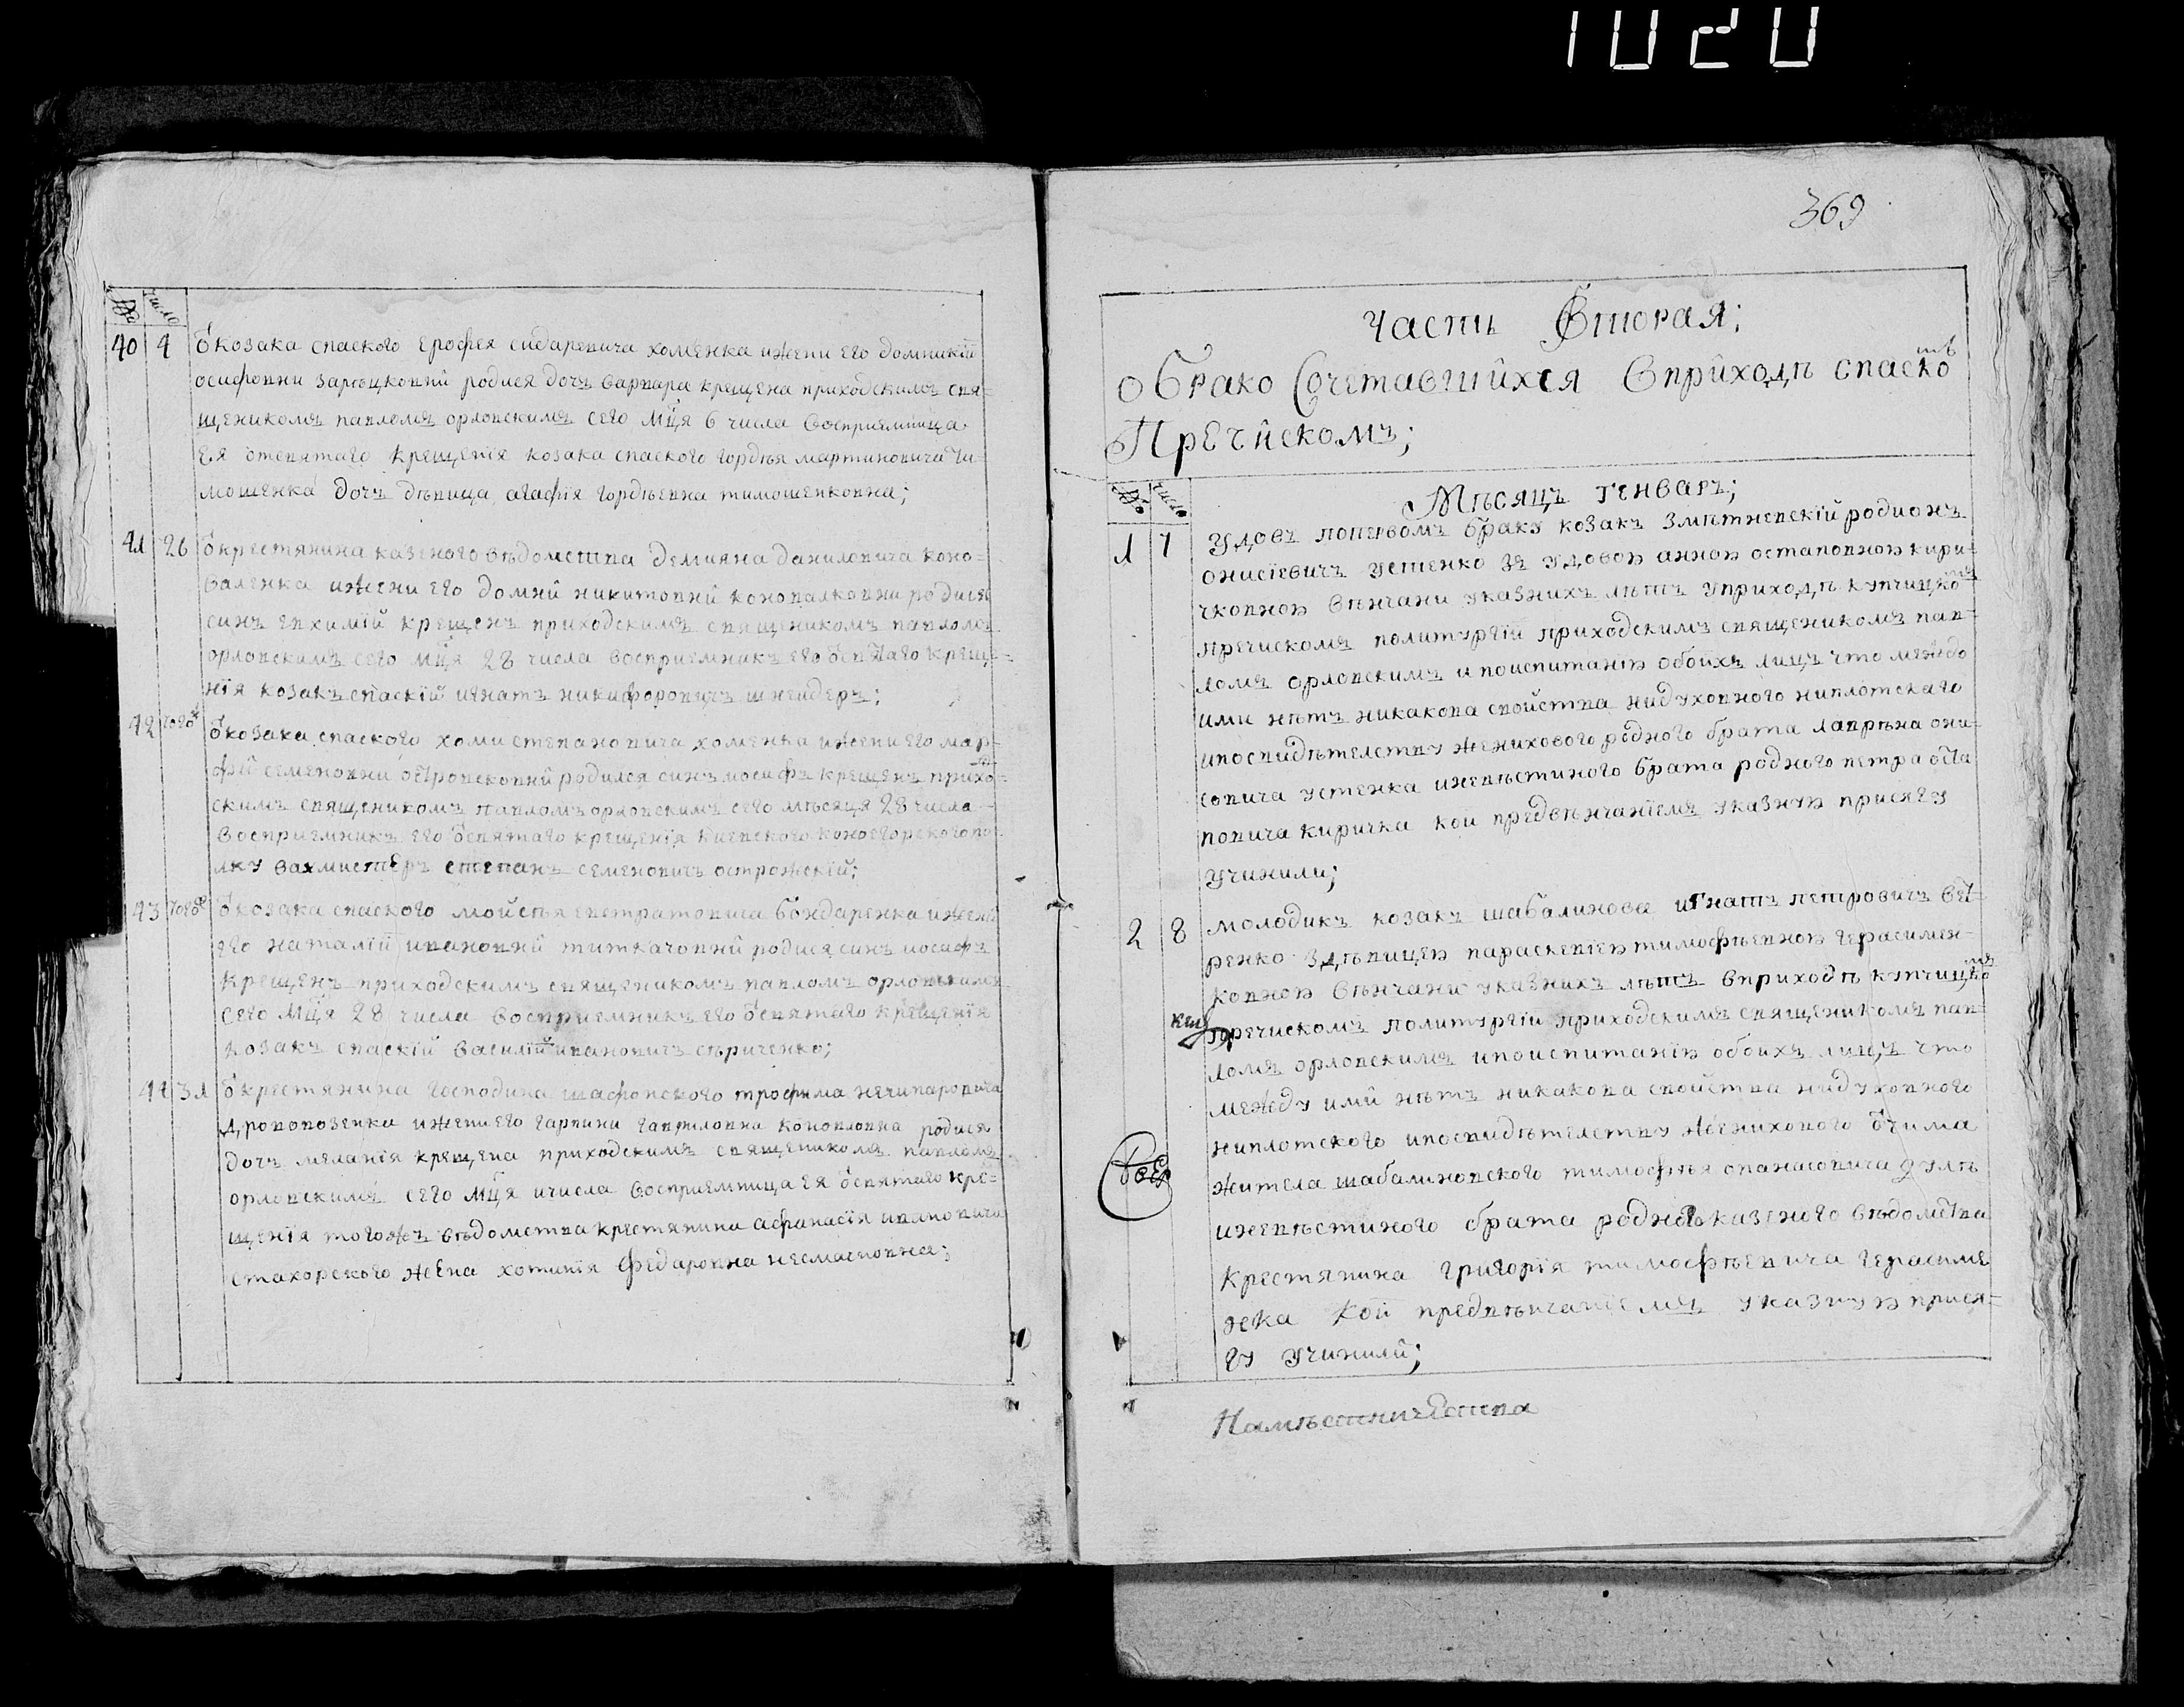 1020
369
№ число
40 4 ѿ козака спаского Ерофея сидаревича хоменка и жени его домникій
осифовни зарѣцковни родися дочъ варвара крещена приходскимъ свя-
щеникомъ павломъ орловскимъ сего мця 6 числа восприемница
ея ѿ святаго крещенія козака спаского гордѣя мартиновича ти-
мошенка дочъ дѣвица агафія гордѣевна тимошенковна;
41 26 ѿ крестянина казеного вѣдомства демияна даниловича коно-
валенка и жени его домни никитовни коновалковни родися
синъ евхимій крещенъ приходскимъ священикомъ павломъ
орловскимъ сего мця 28 числа восприемникъ его ѿ святаго креще-
нія козакъ спаскій игнатъ никифоровичъ шнейдеръ;
42 тогож ѿ козака спаского хоми степановича хоменка и жени его мар-
фи семеновни островсковни родился синъ иосифъ крещенъ прихо-
скимъ священикомъ павломъ орловскимъ сего мѣсяця 28 числа
восприемникъ его ѿ святаго крещенія киевского конноегорского по-
лку вахмистеръ степанъ семеновичъ острожскій;
43 тогож ѿ козака спаского мойсея евстратовича бондаренка и жени
его наталіи ивановни титкачовни родися синъ иосифъ
крещенъ приходскимъ священикомъ павломъ орловскимъ
сего мця 28 числа восприемникъ его ѿ святаго крещенія
козакъ спаскій василій ивановичъ сѣриченко;
44 31 ѿ крестянина господина шафонского трофима нечипаровича
дровопозенка и жени его гарпини гавриловна коноплювна родися
дочъ меланія крещена приходскимъ священикомъ павломъ
орловскимъ сего мця и числа восприемница ея ѿ святаго кре-
щенія тогожъ вѣдомства крестянина афанасія ивановича
стахорского жена хотинія федаровна несмасновна;
Часть Вторая;
о Брако Сочетавшихся в приходѣ спаско
Пречискомъ;
№ число
Мѣсяцъ генваръ;
1 7 удовъ по первомъ браку козакъ змѣтневскій родионъ
онисіевичъ устенко зъ удовою анною остаповною кири-
чковною вѣнчани указнихъ лѣтъ у приходѣ купчицко
пречискомъ по литургіи приходскимъ священикомъ пав-
ломъ орловскимъ и по испитанію обоихъ лицъ что междо
ими нѣтъ никакова свойства ни духовного ни плотскаго
и по свидѣтелству женихового родного брата лаврѣна они-
совича устенка и невѣстиного брата родного петра оста
повича киричка кои предвѣнчаніемъ указную присягу
учинили;
2 8 молодикъ козакъ шабалинова игнатъ петровичъ вет-
ренко з дѣвицею параскевіею тимофѣевною герасимен-
ковною вѣнчани указнихъ лѣтъ в приходѣ купчицко
пречискомъ по литургіи приходскимъ священикомъ пав-
ломъ орловскимъ и по испитанію обоихъ лицъ что
между ими нѣтъ никакова свойства ни духовного
ни плотского и по свидѣтелству женихового ѿчима
жителя шабалиновского тимофѣя опанасовича
и невѣстиного брата родного казеного вѣдомства
крестянина григорія тимофѣевича герасиме
нка кои предвѣнчаніемъ указную прися-
гу учинили;
Намѣстничества